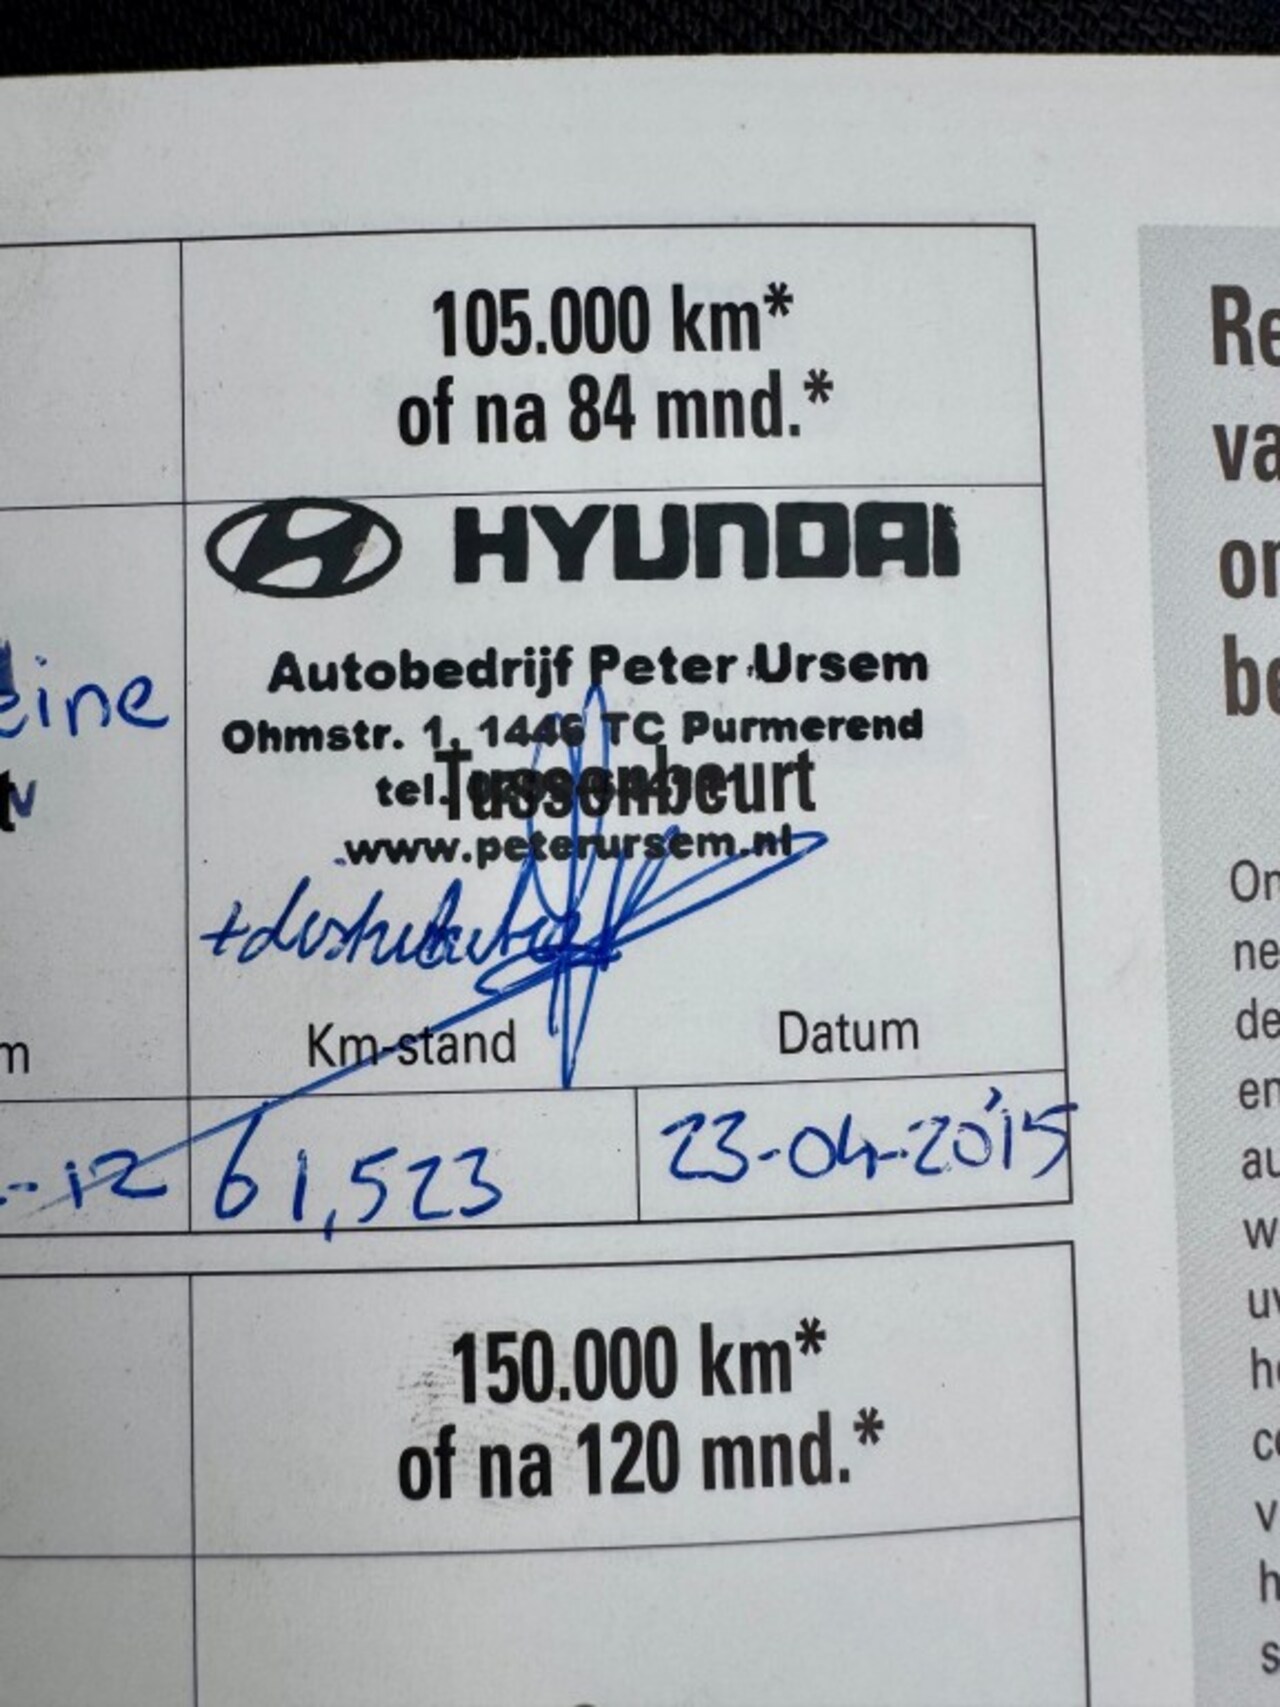 105.000 km*
of na 84 mnd.*
HYUNDAI
Autobedrijf Peter Ursem
Ohmstr. 1, 1446 TC Purmerend
tel.
Tussenbeurt
www.peterursem.nl
eine
Km-stand
Datum
m
-12
61,523
23-04-2015
150.000 km*
of na 120 mnd.*
Re
va
on
be
On
ne
de
en
au
w
uv
he
co
v
h
s